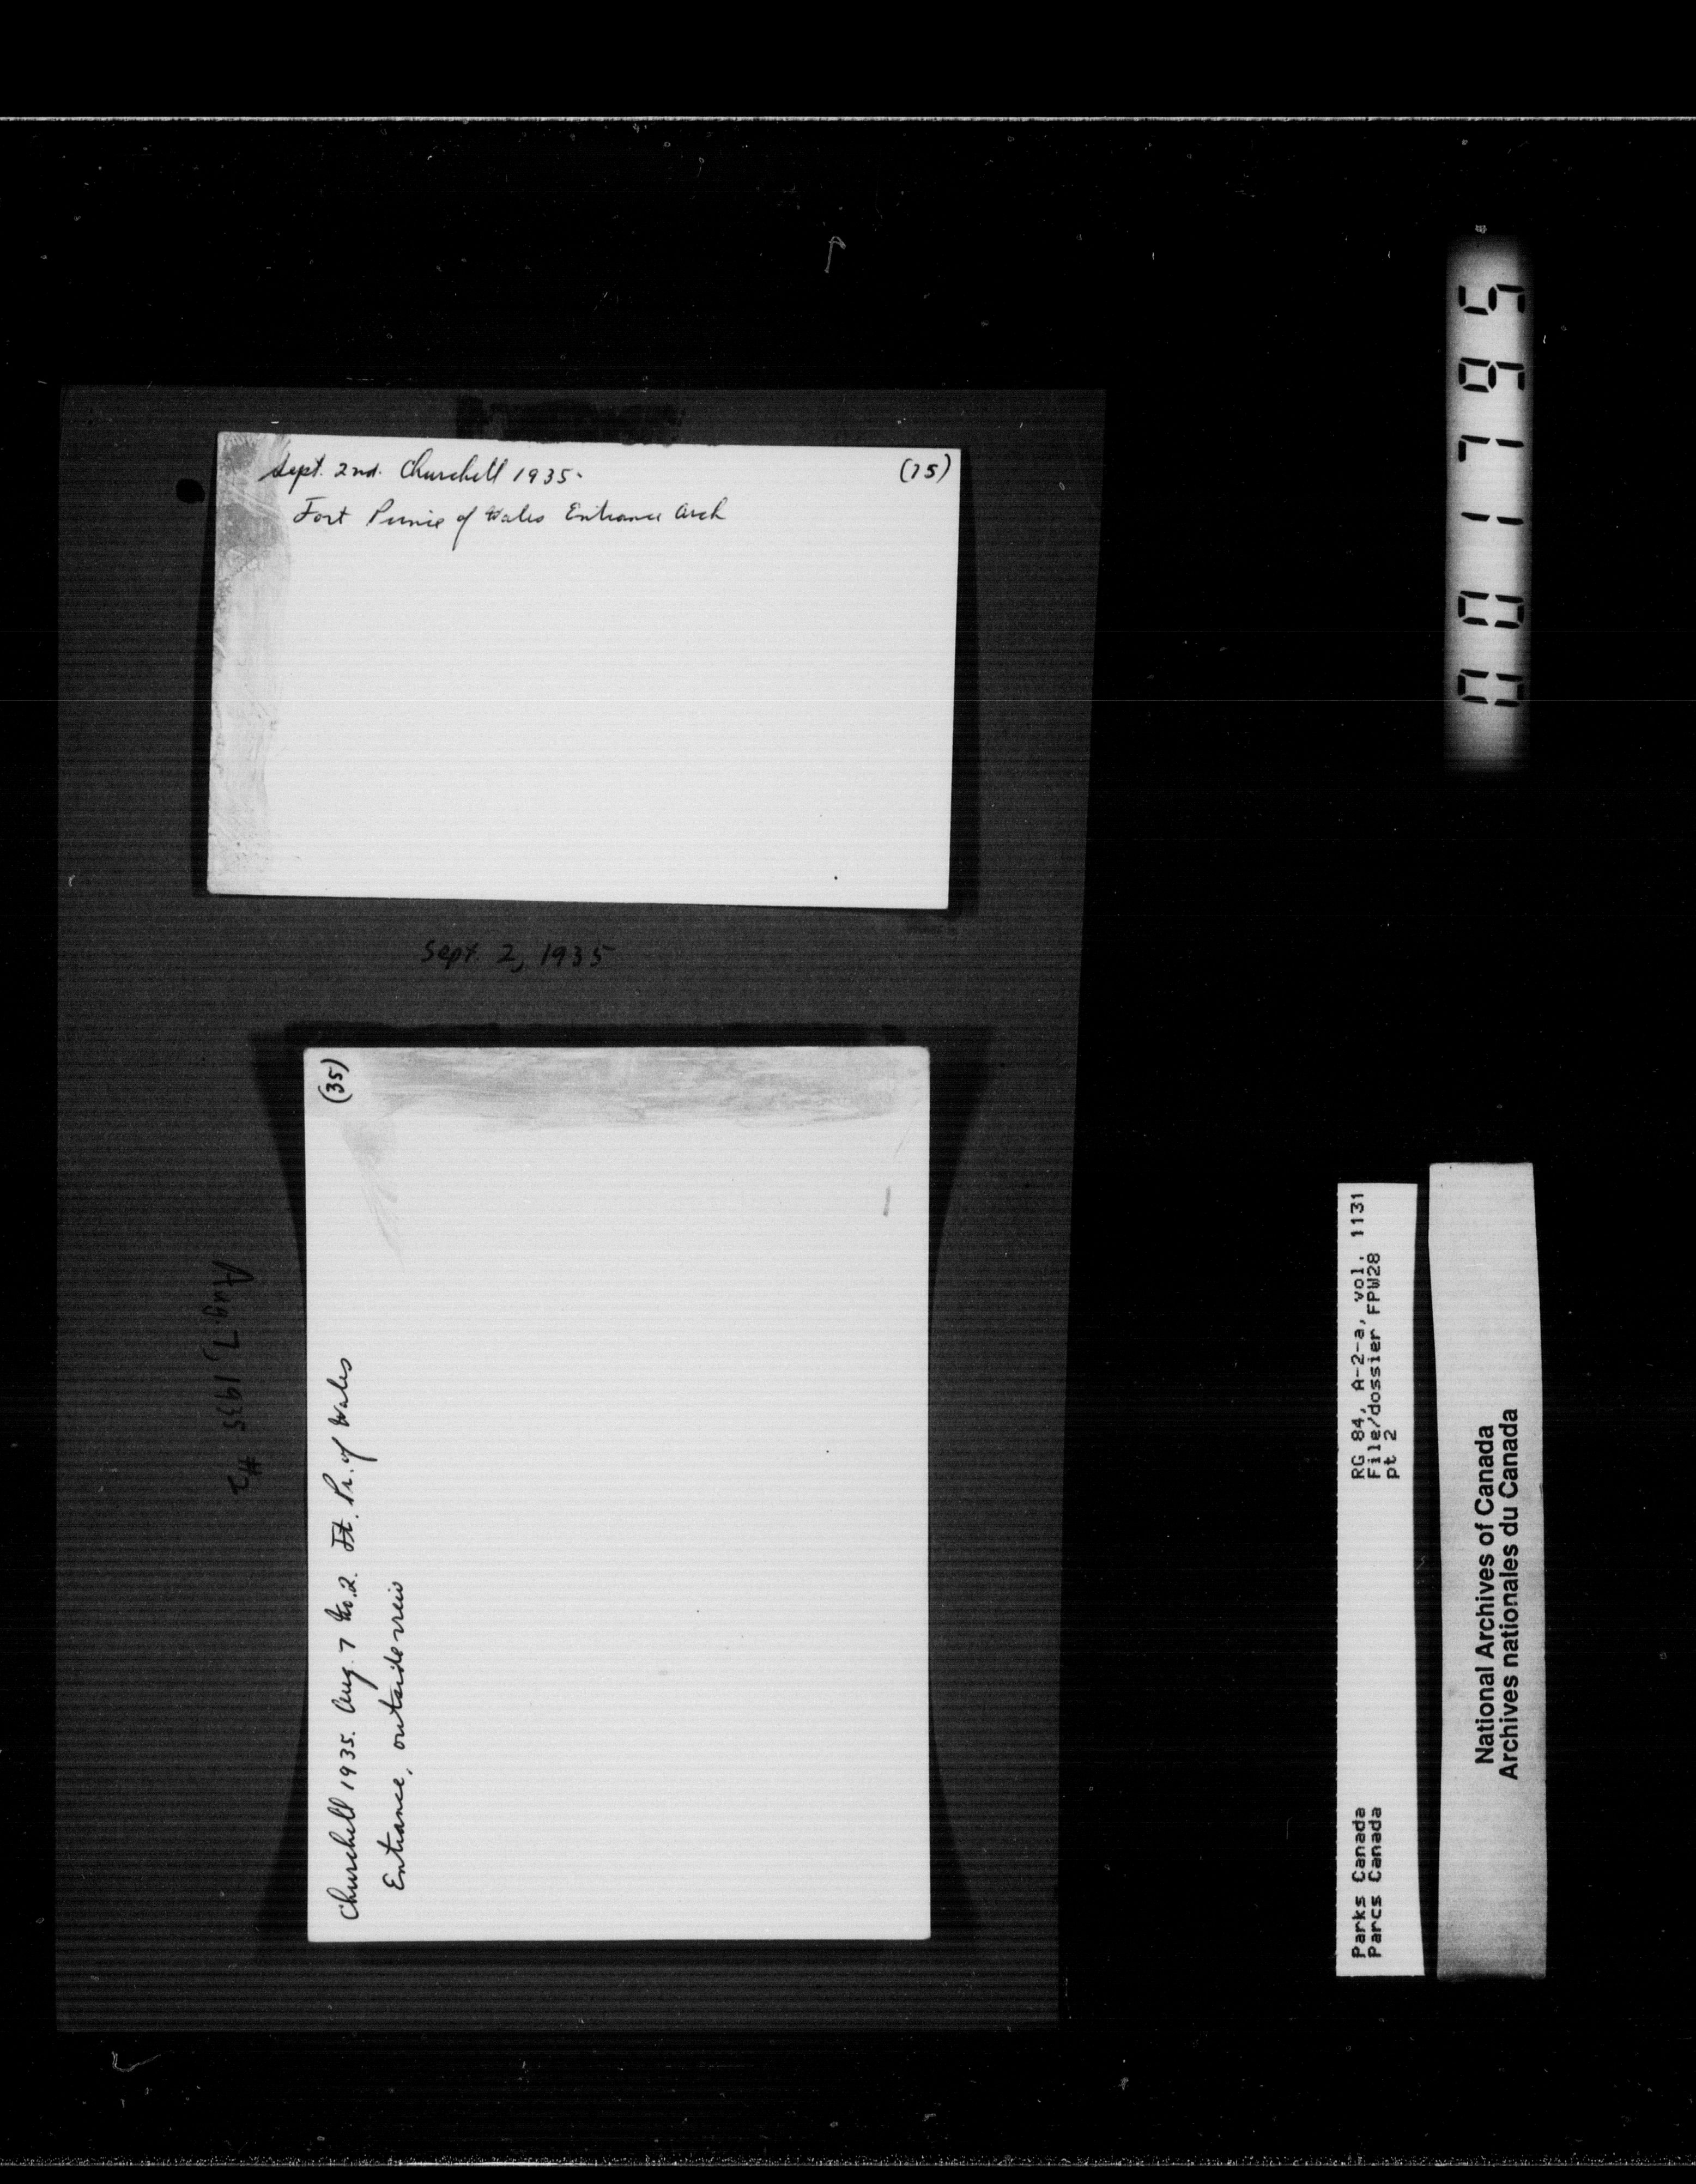 Sept. 2nd. Churchill 1935.
Fort Prince of Wales Entrance Arch
Sept. 2, 1935
(35)
Churchill 1935. Aug. 7 No. 2. Ft. Pr. of Wales
Entrance, outside view
Aug. 7, 1935 #2
001795
Parks Canada RG 84, A-2-a, vol. 1131
Parcs Canada File/dossier FPW28
pt 2
National Archives of Canada
Archives nationales du Canada